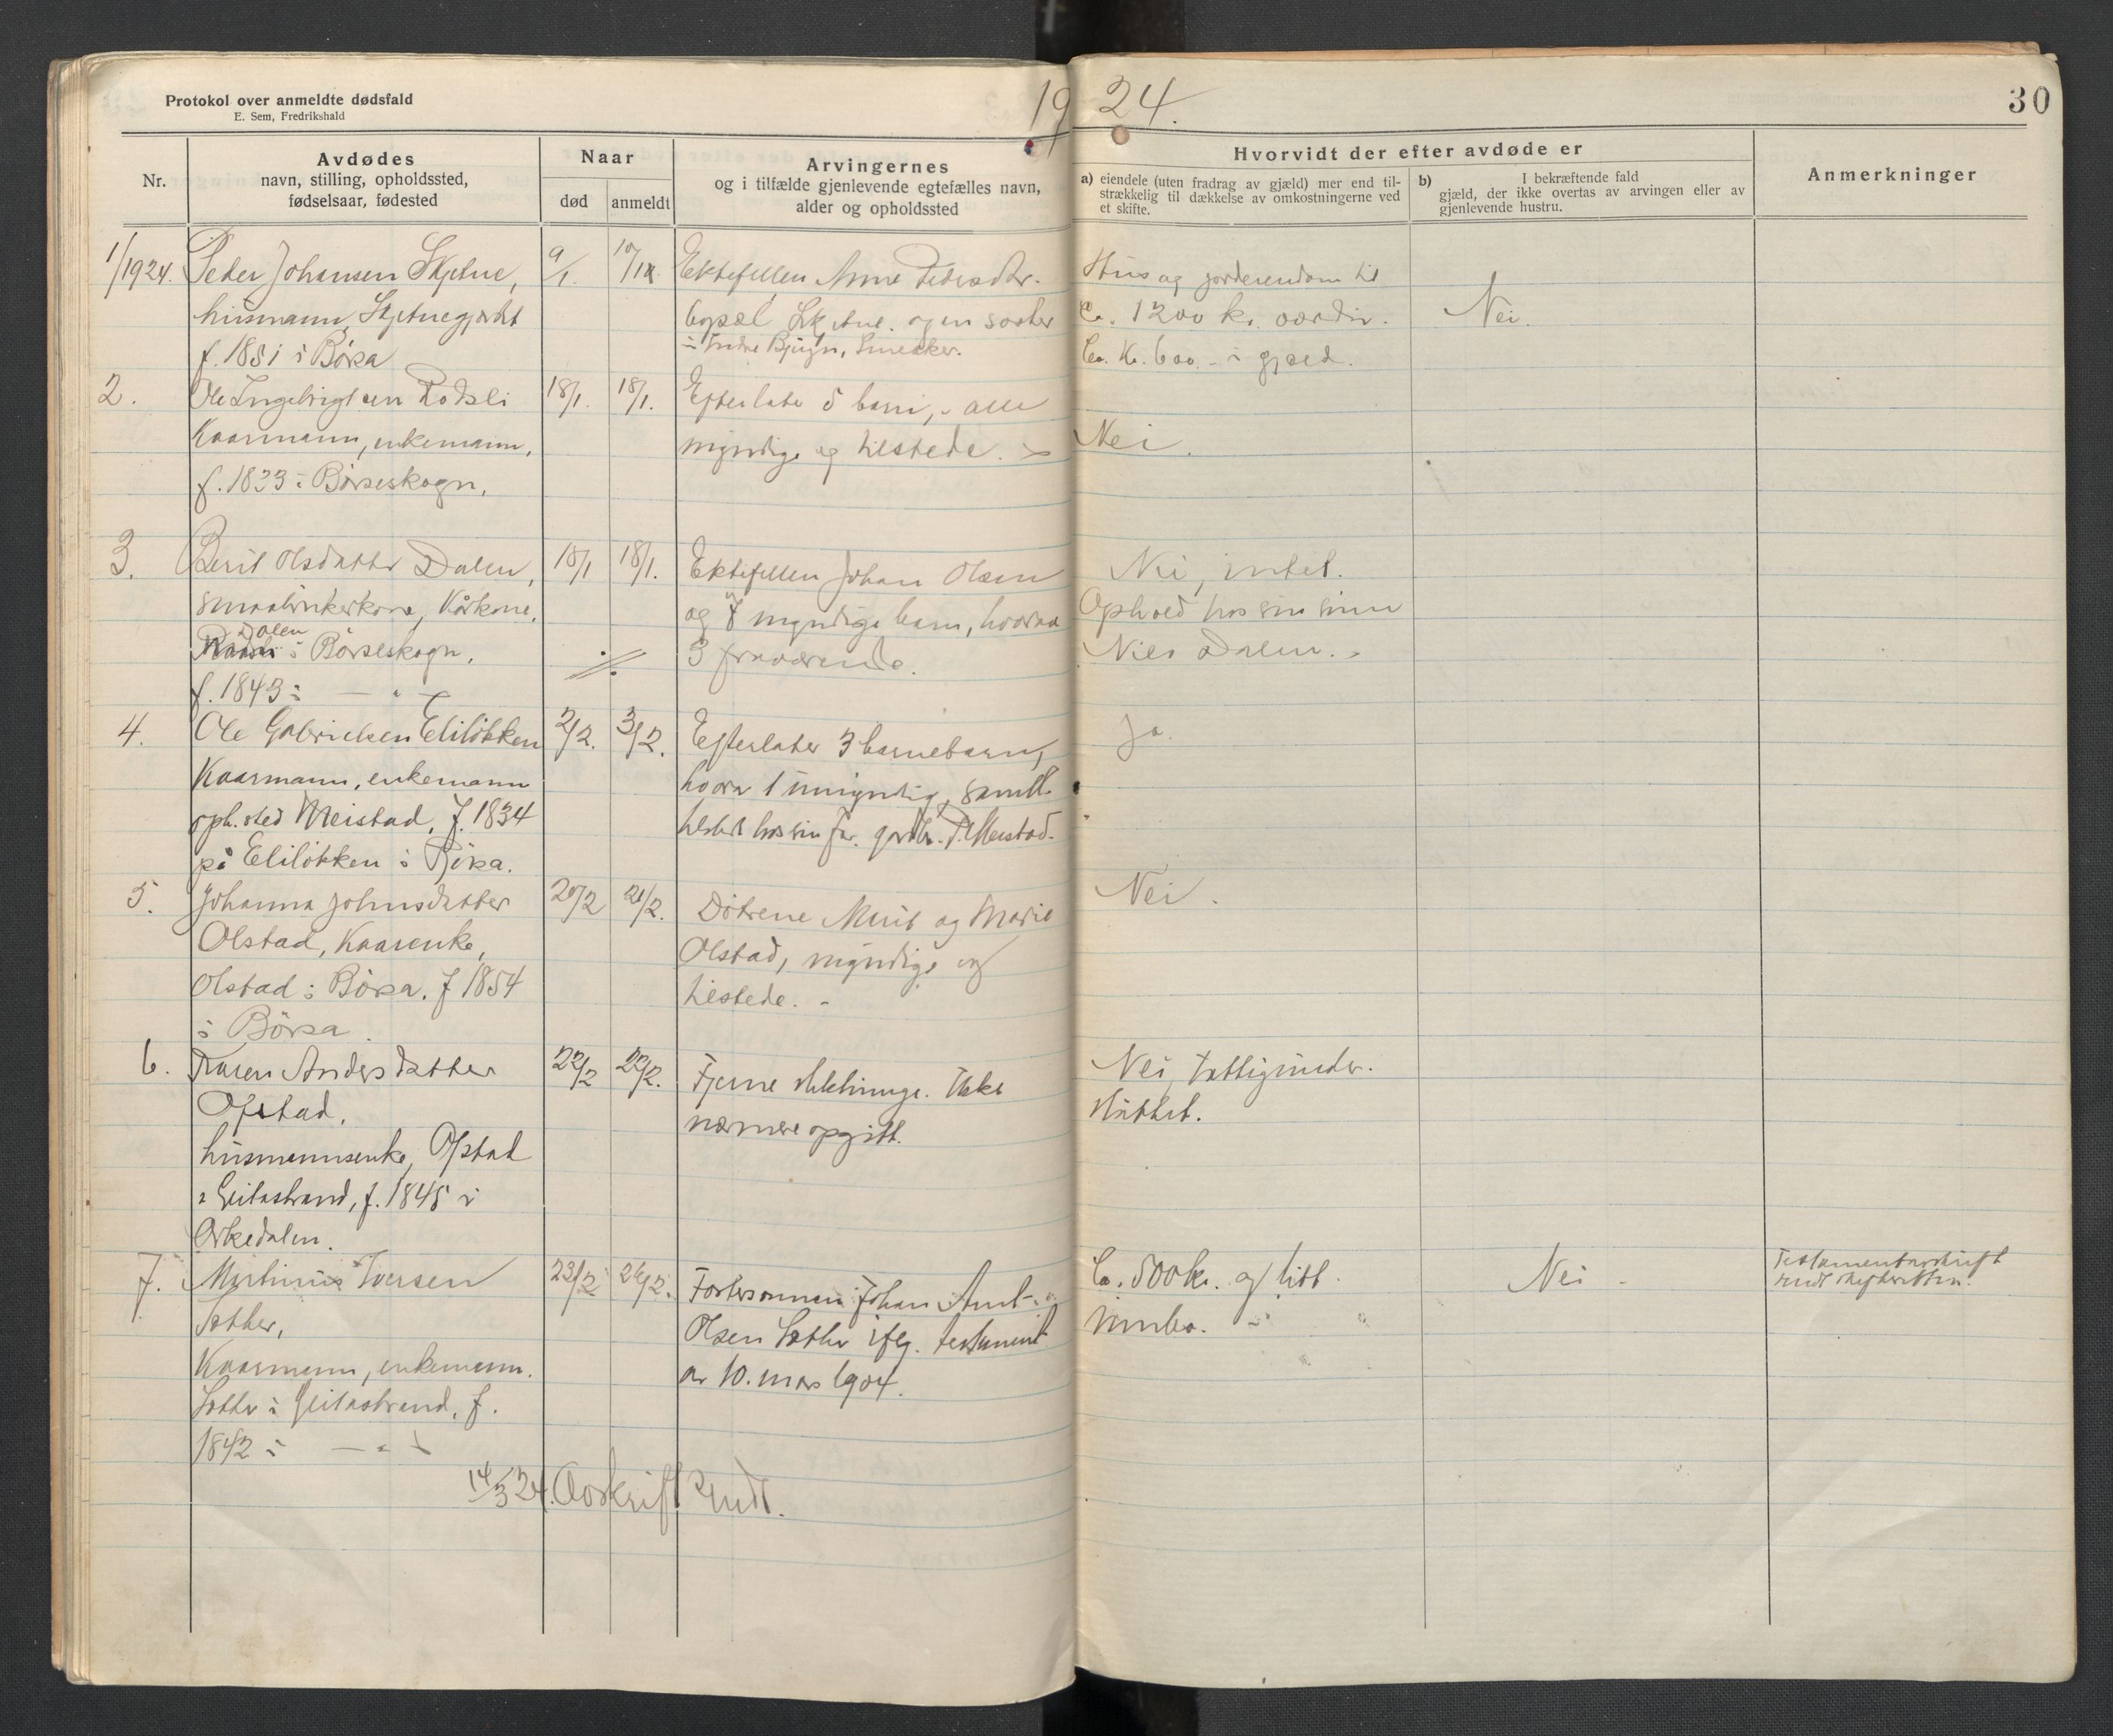 Protokol over anmeldte dødsfald
E. Sem, Fredrikshald
1924.
30
Nr.
Avdødes
navn, stilling, opholdssted,
fødselsaar, fødested
Naar
død
anmeldt
Arvingernes
og i tilfælde gjenlevende egtefælles navn,
alder og opholdssted
Hvorvidt der efter avdøde er
a) eiendele (uten fradrag av gjæld) mer end til-
strækkelig til dækkelse av omkostningerne ved
et skifte.
b) I bekræftende fald
gjæld, der ikke overtas av arvingen eller av
gjenlevende hustru.
Anmerkninger
1/1924.
Peder Johansen Skjetne,
husmann,
f. 1851 i Børsa
9/1.
10/1
Ektefellen Anne Pedersdtr.
Skjetne. og en søster
i Bjugn,
Hus og jordeiendom til
Ca. 1200 kr. værdi.
Ca. Kr. 600 - i gjæld.
Nei.
2.
Ole Ingebrigtsen
Kaarmann, enkemann,
f. 1833 i Børseskogn,
18/1.
18/1.
Efterlater 5 barn, - alle
myndige og tilstede.
Nei.
3.
Berit Olsdatter Dalen,
smaabrukerkone, Kårkone,
Dalen
i Børseskogn,
f. 1843 i — " —
18/1
18/1.
Ektefellen Johan Olsen
og 7 myndige barn, hvorav
3 fraværende.
Nei, intet.
Ophold hos sin sønn
Nils Dalen.
4.
Ole Gabrielsen Eliløkken
Kaarmann, enkemann
oph.sted Meistad, f. 1834
på Eliløkken i Børsa.
2/2.
3/2.
Efterlater 3 barnebarn,
hvorav 1 umyndig, samtl.
tilsted hos sin far, gardbr. P. Meistad.
Ja.
5.
Johanna Johnsdatter
Olstad, Kaarenke,
Olstad i Børsa. f 1854
i Børsa.
20/2
21/2.
Døtrene Marit og Marie
Olstad, myndige og
tilstede. -
Nei.
6.
Karen Andersdatter
Ofstad,
husmannsenke, Ofstad
i Geitastrand, f. 1845 i
Orkedalen.
22/2
22/2.
Fjerne slektninge. Ikke
nærmere opgitt.
Nei, fattigunder-
støttet.
7.
Martinus Iversen
Sæther,
Kaarmann, enkemann.
Sæther i Geitastrand, f.
1842 i — " —
23/2
26/2.
Fostersønnen Johan Arnt
Olsen Sæther iflg. testament
av 10. mars 1904.
Ca. 500 kr. og litt
innbo.
Nei -
Testamentavskrift
sendt skifteretten.
14/3 24. Avskrift sendt.